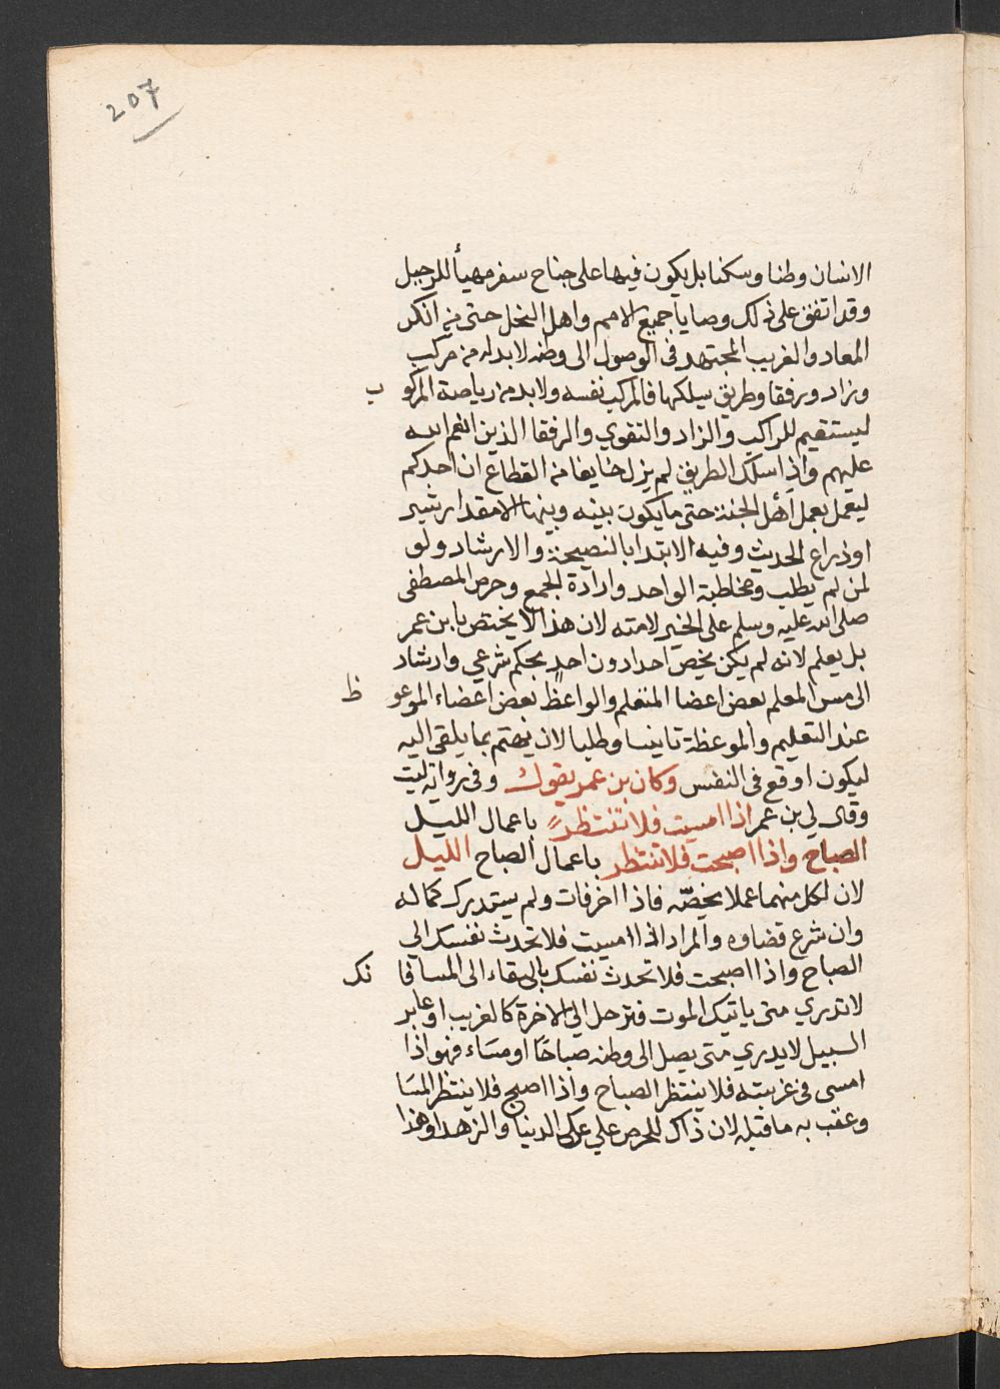 207
الانسان وطنا وسكنا بل يكون فيها على جناح سفر مهيأ للرحيل
وقد اتفق على ذلك وصايا جميع الامم واهل النحل حتى من انكر
المعاد والغريب المجتهد فى الوصول الى وطنه لابد له من مركب
وزاد ورفقا وطريق يسلكها فالمركب نفسه ولابد من رياضة المركوب
ليستقيم للراكب والزاد والتقوي والرفقا الذين انعم الله
عليهم واذا سلك الطريق لم يزل خايفا من القطاع ان احدكم
ليعمل بعمل أهل الجنة حتى ما يكون بينه وبينها الا مقدار شبر
او ذراع الحديث وفيه الابتدا بالنصيحة والارشاد ولو
لمن لم يطلب ومخاطبة الواحد وارادة الجمع وحرص المصطفى
صلى الله عليه وسلم على الخير لامته لان هذا لا يختص بابن عمر
بل يعلم لانه لم يكن يخص احدا دون احد بحكم شرعي وارشاد
الى مس المعلم بعض اعضا المتعلم والواعظ بعض اعضاء الموعوظ
عند التعليم والموعظة تانيسا وطلبا لان يهتم بما يلقى اليه
ليكون اوقع فى النفس وكان بن عمر يقول وفى رواية ليث
وقال لي بن عمر اذا امسيت فلا تنتظر باعمال الليل
الصباح واذا اصبحت فلا تنتظر باعمال الصباح الليل
لان لكل منهما عملا يخصّه فاذا اخر فات ولم يستدرك كماله
وان شرع قضاوه والمراد اذا امسيت فلا تحدث نفسك الى
الصباح واذا اصبحت فلا تحدث نفسك بالبقاء الى المسا فانك
لا تدري متى ياتيك الموت فترحل الى الاخرة كالغريب او عابر
السبيل لا يدري متى يصل الى وطنه صباحًا او مساء فهو اذا
امسى فى غربته فلا ينتظر الصباح واذا اصبح فلا ينتظر المسا
وعقب به ما قبله لان ذاك للحرص علي ترك الدنيا والزهد وهذا